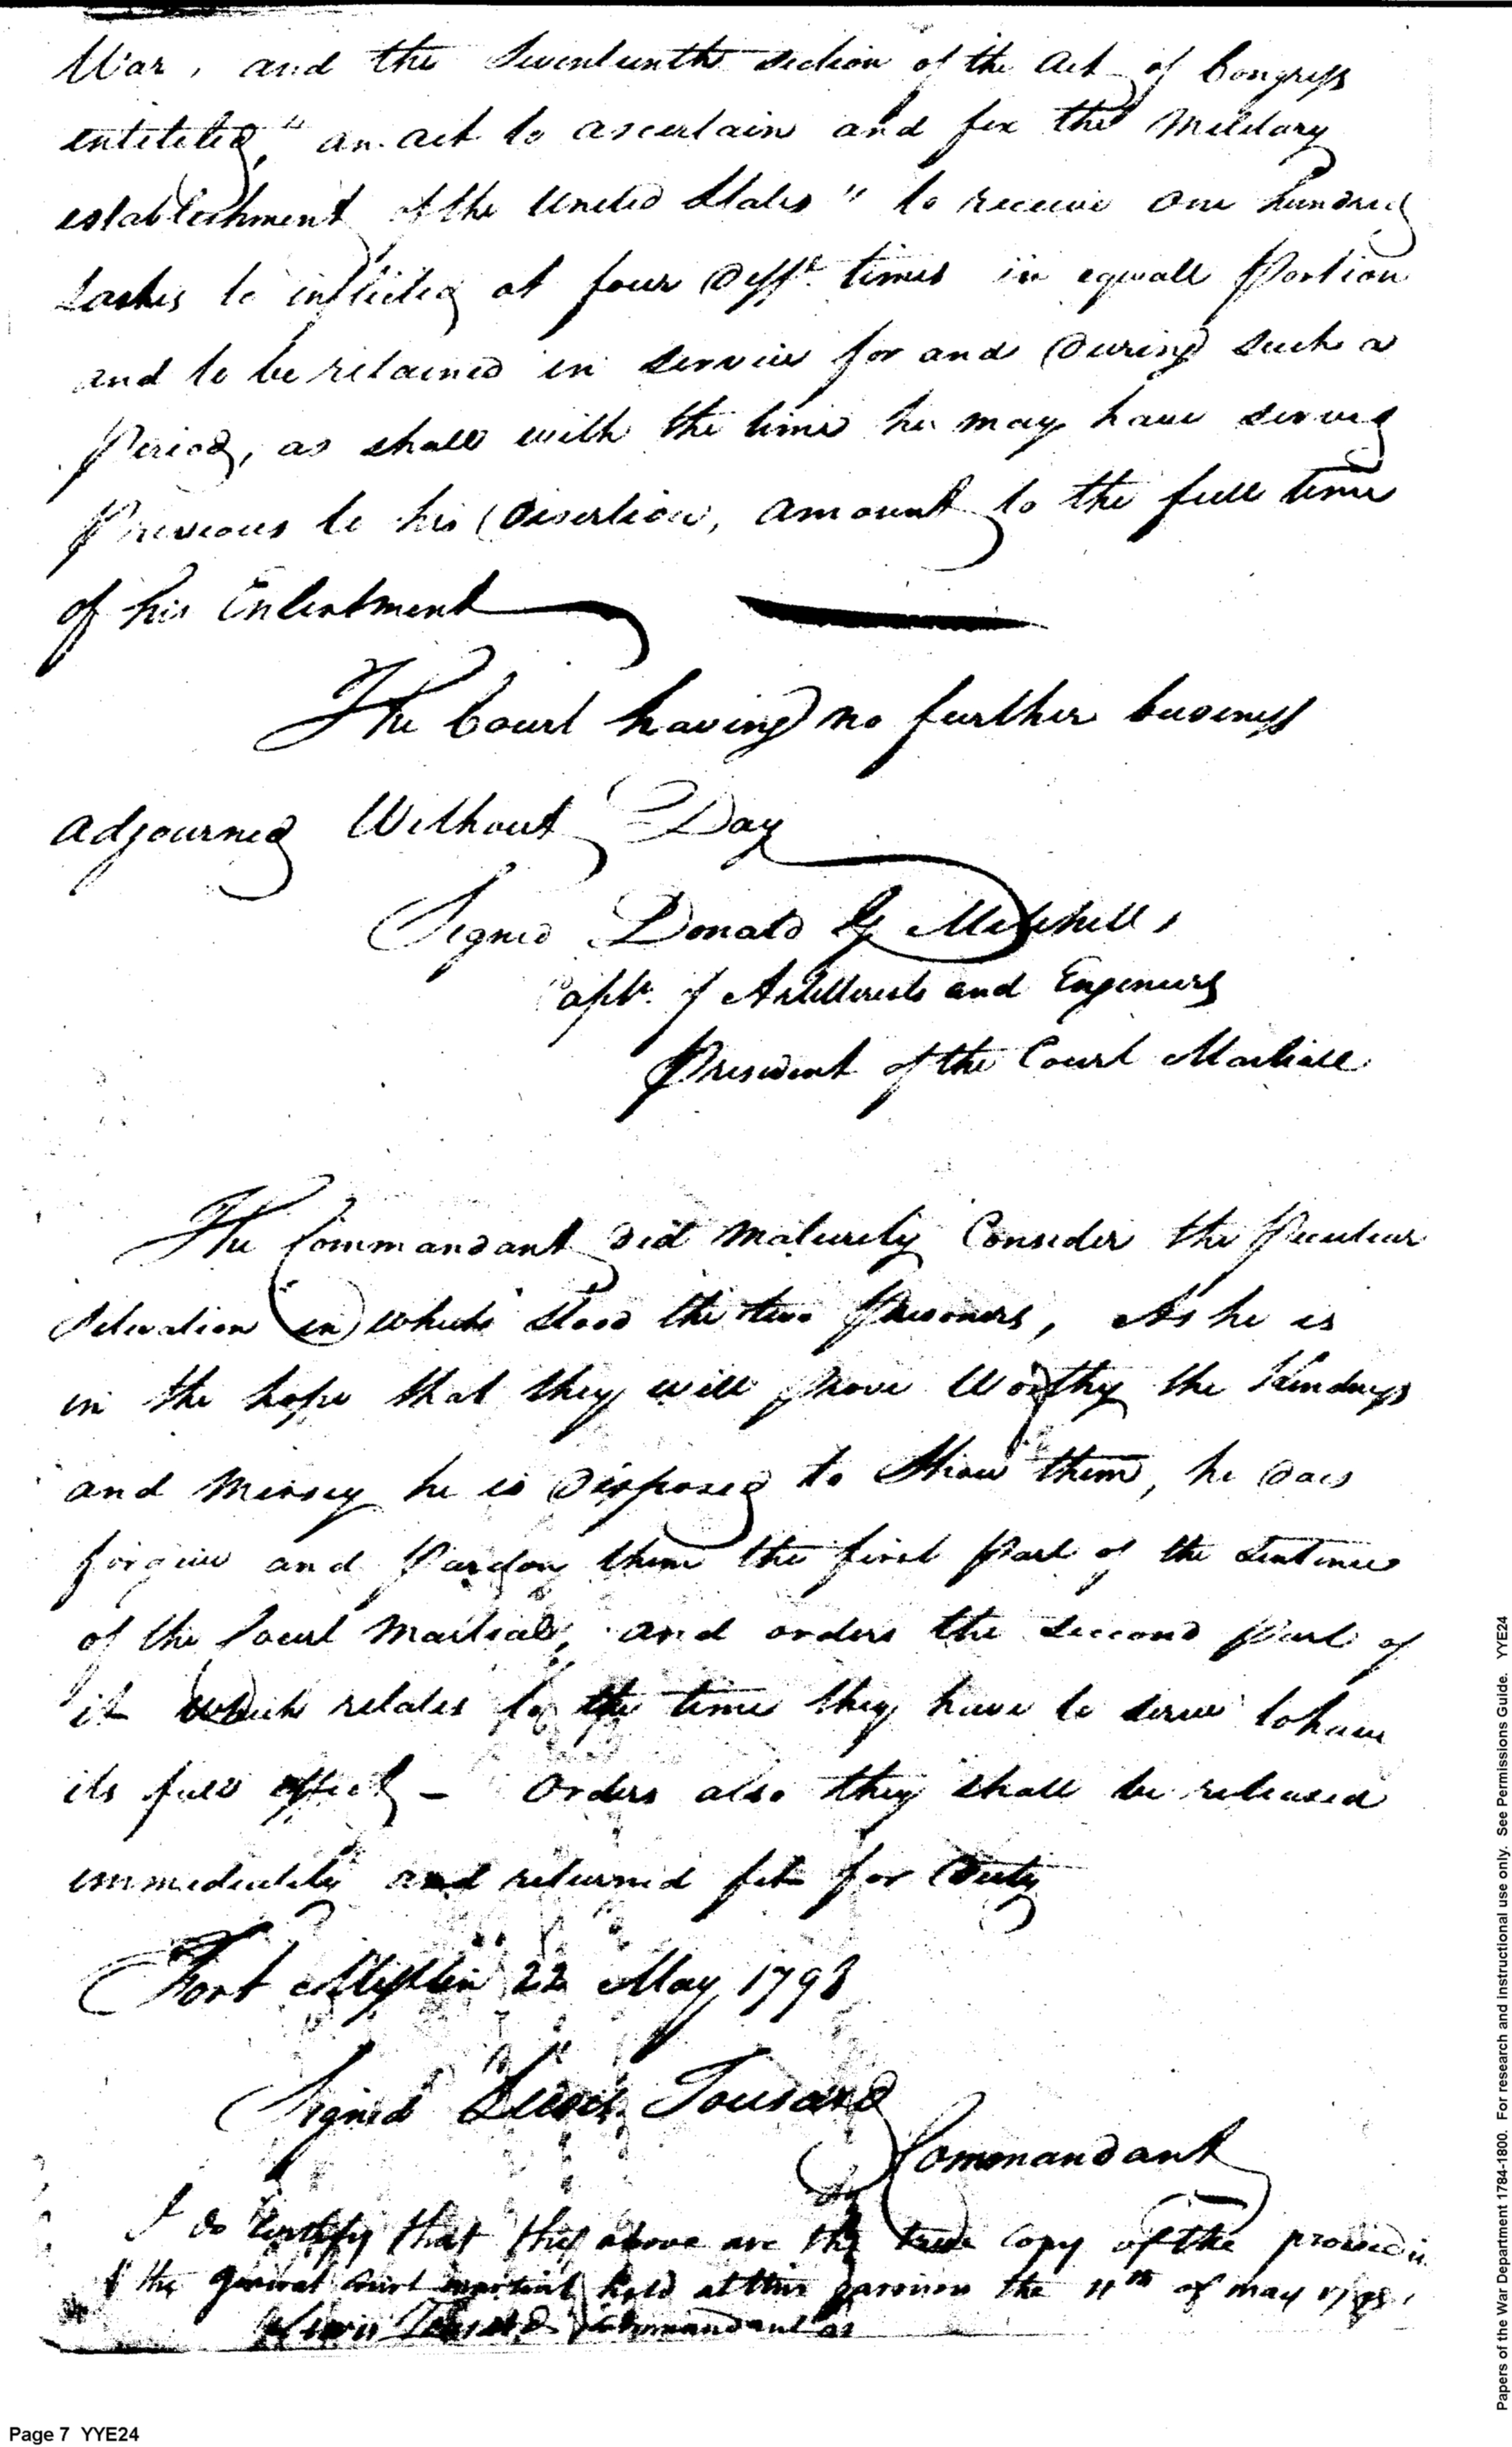 War, and the Seventeenth section of the Act of Congress
entitled, "an act to ascertain and fix the Military
establishment of the United States" to receive one hundred
Lashes to inflicted at four Difft. times in equall Portion
and to be retained in service for and During such a
Period, as shall with the time he may have served
Previous to his Disertion, amount to the full time
of his Enlistment
The Court having no further business
adjourned Without Day
Signed Donald G Mitchell,
Capt. of Artillerists and Engeneers
President of the Court Martiall
The Commandant did maturely Consider the Peculiar
situation in which stood the two Prisoners, As he is
in the hope that they will prove Worthy the Kindness
and Mersey he is Disposed to Show them, he Does
forgive and Pardon them the first Part of the Sentence
of the Court Martial, and orders the second Part of
it which relates to the time they have to serve to have
its full effect - Orders also they shall be released
immediately and returned fit for Duty
Fort Mifflin 22 May 1798
Signed Lewis Tousard
Commandant
I do Certify that the above are the true Copy of the proceedin
of the general court martial held at this garrison the 11th of may 1798.
Lewis Tousard Commandant
Page 7 YYE24
Papers of the War Department 1784-1800. For research and instructional use only. See Permissions Guide. YYE24